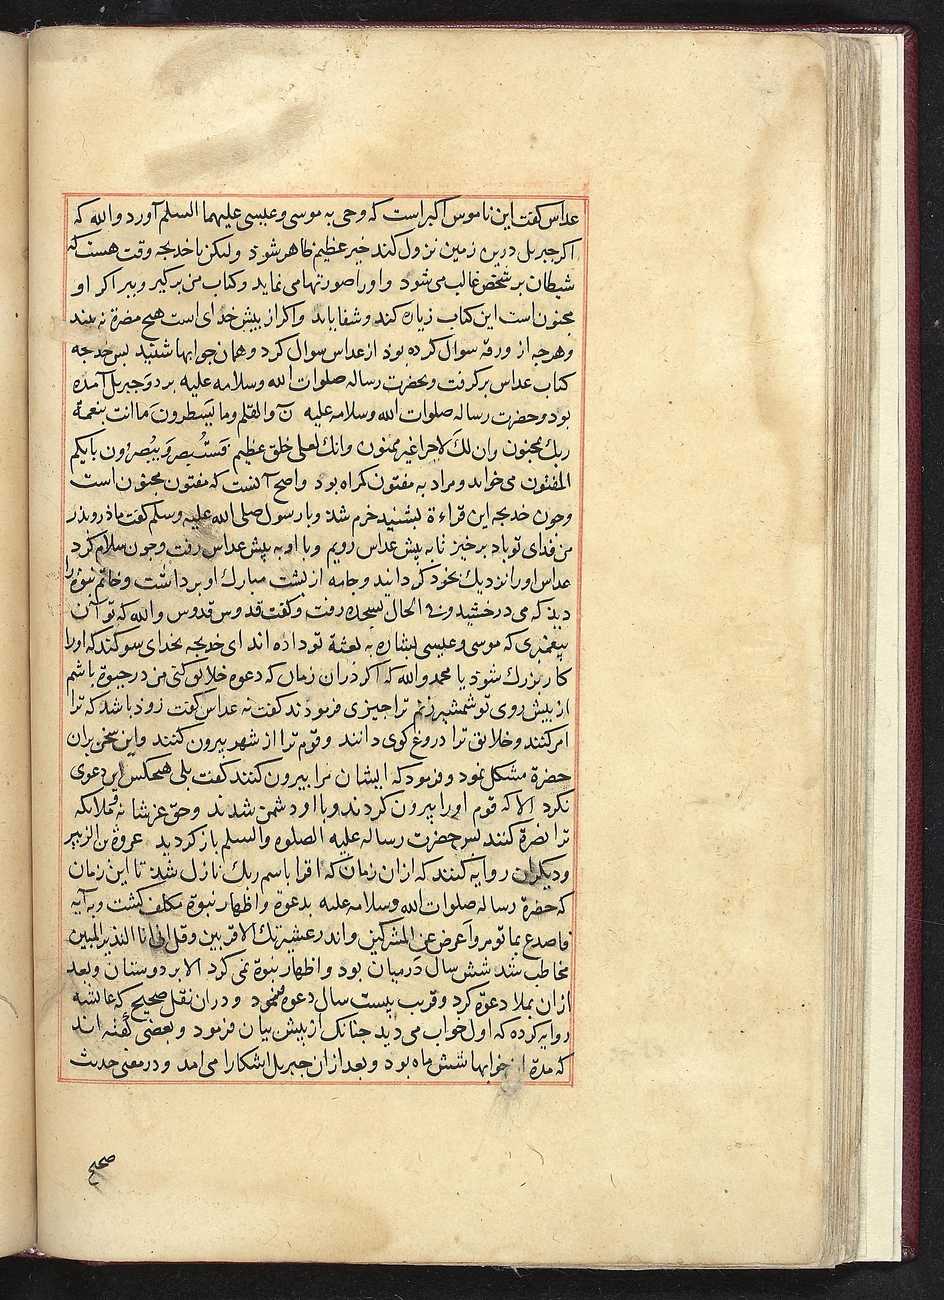 عداس کفت این ناموس اکبر است که وحی به موسی و عیسی علیهما السلم آورد و الله که
اکر جبریل درین زمین نزول کند خیر عظیم ظاهر شود ولیکن یا خدیجه وقت هست که
شیطان بر شخص غالب می شود و او را صورتها می نماید و کتاب من برکیر و ببر اکر او
مجنون است این کتاب زیاره کند و شفا یابد و اکر از پیش خدای است هیچ مضرة نه بیند
و هرچه از ورقه سوال کرده بود از عداس سوال کرد و همان جوابها شنید پس خدیجه
کتاب عداس برکرفت و بحضرت رساله صلوات الله وسلامه علیه برد و جبریل آمده
بود و حضرت رساله صلوات الله وسلامه علیه نٓ والقلم وما یسطرون ما انت بنعمة
ربك بمجنون وان لك لاجرا غیر ممنون وانك لعلی خلق عظیم فستُبصر ویبُصرون بایکم
المفتون می خواند و مراد به مفتون کمراه بود واصح آنست که مفتون مجنون است
وجون خدیجه این قراءة بشنید خرم شد و با رسول صلی الله علیه وسلم کفت ماذر و بذر
من فدای تو باد برخیز تا به پیش عداس رویم و با او به پیش عداس رفت وجون سلام کرد
عداس او را نزدیك بخود کردانید و جامه از پشت مبارك او برداشت و خاتم نبوة را
دیذ که می درخشید و فی الحال بسجده رفت و کفت قدوس قدوس والله که تو آن
پیغمبری که موسی و عیسی بشاره به بعثة تو داده اند ای خدیجه بخدای سوکند که او را
کار بزرك شود یا محمد والله که اکر دران زمان که دعوه خلایق کنی من در حیوة باشم
از پیش روی تو شمشیر زنم ترا چیزی فرموذند کفت نه عداس کفت زود باشد که ترا
امر کنند و خلایق ترا دروغ کوی دانند و قوم ترا از شهر بیرون کنند و این سخن بران
حضرة مشکل نمود و فرمود که ایشان مرا بیرون کنند کفت بلی هیچکس این دعوی
نکرد الا که قوم او را بیرون کردند و با او دشمن شدند و حق عز شانه و ملایکه
ترا نضرة کنند پس حضرت رساله علیه الصلوه والسلم باز کردید عروة بن الزبیر
و دیکران روایه کنند که ازان زمان که اقرا باسم ربك نازل شد تا این زمان
که حضرة رساله صلوات الله وسلامه علیه بدعوة و اظهار نبوة مکلف کشت و به آیه
فاصدع بما تومر واعرض عن المشرکین وانذر عشیرتك الاقربین وقل انی انا النذیر المبین
مخاطب شد شش سال درمیان بود و اظهار نبوة نمی کرد الا بر دوستان و بعد
ازان بملا دعوة کرد و قریب بیست سال دعوه فرمود و دران نقل صحیح که عایشه
روایه کرده که اول خواب می دید چنانک از پیش بیان فرمود و بعضی کفته اند
که مدة خوابها شش ماه بود و بعد ازان جبریل اشکارا می امد و در معنی حدیث
صحیح